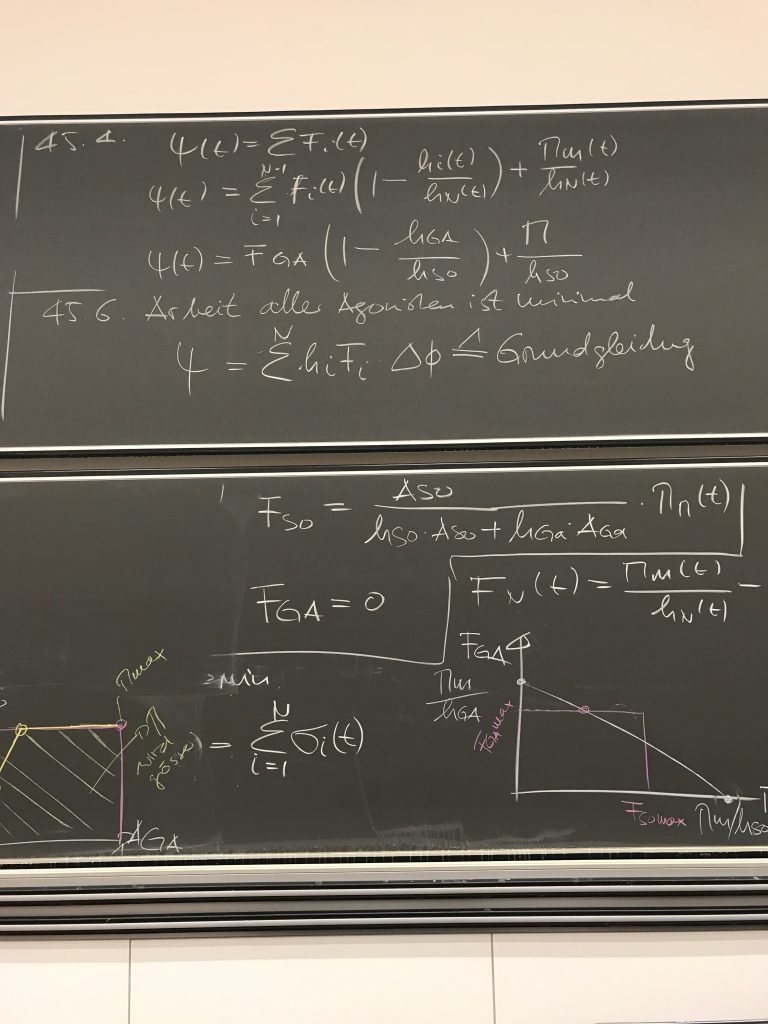 45.4. Ψ(t) = ΣFi(t)
Ψ(t) = Σ_{i=1}^{N-1} Fi(t) (1 - hi(t)/hN(t)) + Mm(t)/hN(t)
Ψ(t) = FGA (1 - hGA/hSO) + M/hSO
45.6. Arbeit aller Agonisten ist minimal
Ψ = Σ^N hiFi · Δϕ ≙ Grundgleichung
FSO = ASO/(hSO·ASO + hGA·AGA) · Mn(t)
FGA = 0
FN(t) = Mm(t)/hN(t) -
= min
= Σ_{i=1}^{N} σi(t)
Mmax
wird
AGA
FGA
Mm/hGA
FGAmax
FSOmax
Mm/hSO